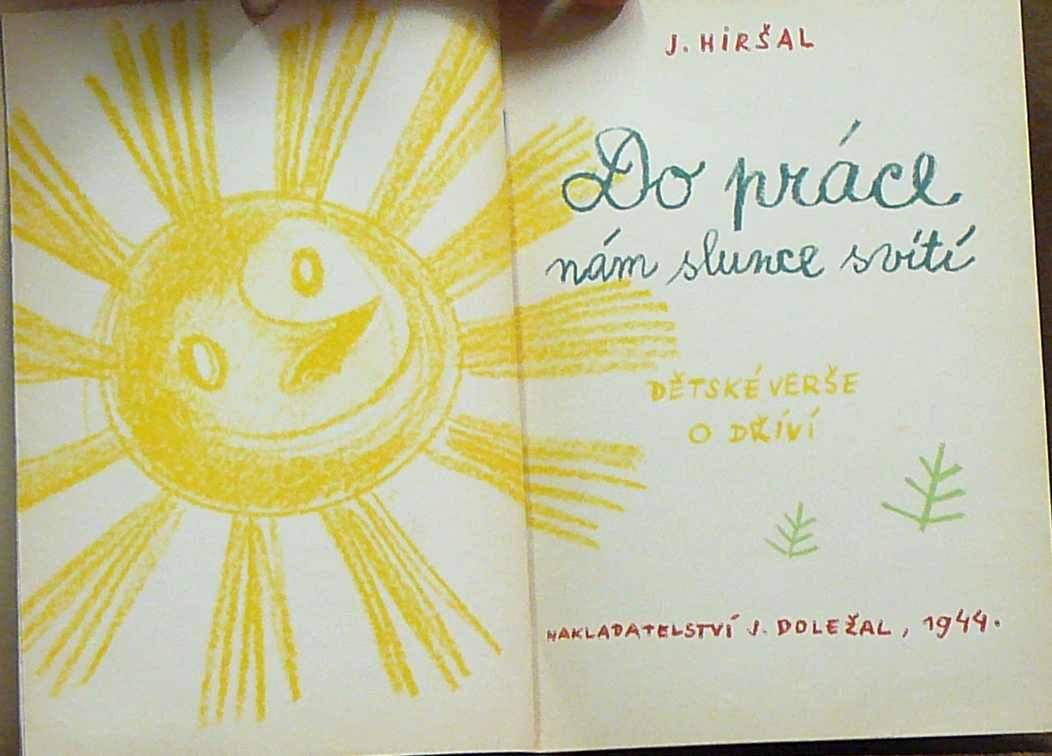 J. HIRŠAL
Do práce
nám slunce svítí
DĚTSKÉ VERŠE
O DŘÍVÍ
NAKLADATELSTVÍ J. DOLEŽAL, 1944.